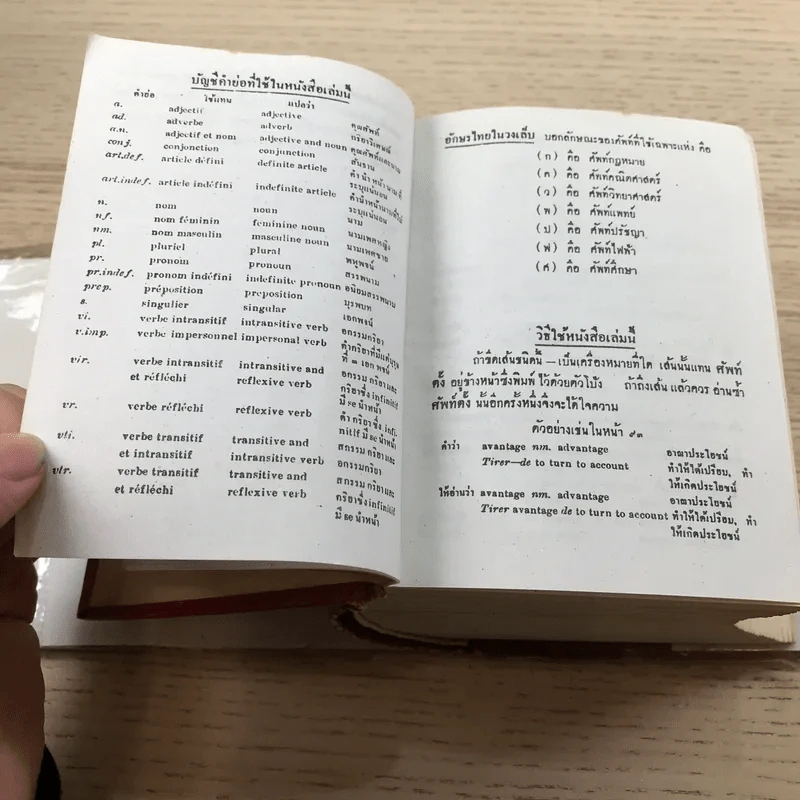 บัญชีคำย่อที่ใช้ในหนังสือเล่มนี้
คำย่อ ใช้แทน แปลว่า
a. adjectif adjective คุณศัพท์
ad. adverbe adverb กริยาวิเศษณ์
a.n. adjectif et nom adjective and noun คุณศัพท์และนาม
conj. conjonction conjunction สันธาน
art.def. article défini definite article คำนำหน้านามที่
ระบุแน่นอน
art.indef. article indéfini indefinite article คำนำหน้านามที่ไม่
ระบุแน่นอน
n. nom noun นาม
nf. nom féminin feminine noun นามเพศหญิง
nm. nom masculin masculine noun นามเพศชาย
pl. pluriel plural พหูพจน์
pr. pronom pronoun สรรพนาม
pr.indef. pronom indéfini indefinite pronoun อนิยมสรรพนาม
prep. préposition preposition บุรพบท
s. singulier singular เอกพจน์
vi. verbe intransitif intransitive verb อกรรมกริยา
v.imp. verbe impersonnel impersonal verb
ที่ ๓ เอกพจน์
vir. verbe intransitif intransitive and อกรรมกริยาและ
et réfléchi reflexive verb กริยาซึ่ง infinitif
มี se นำหน้า
vr. verbe réfléchi reflexive verb คำกริยาซึ่ง infi-
nitif มี se นำหน้า
vti. verbe transitif transitive and สกรรมกริยาและ
et intransitif intransitive verb อกรรมกริยา
vtr. verbe transitif transitive and สกรรมกริยาและ
et réfléchi reflexive verb กริยาซึ่ง infinitif
มี se นำหน้า
อักษรไทยในวงเล็บ บอกลักษณะของศัพท์ที่ใช้เฉพาะแห่ง คือ
(ก) คือ ศัพท์กฎหมาย
(ค) คือ ศัพท์คณิตศาสตร์
(ว) คือ ศัพท์วิทยาศาสตร์
(พ) คือ ศัพท์แพทย์
(ป) คือ ศัพท์ปรัชญา
(ฟ) คือ ศัพท์ไฟฟ้า
(ศ) คือ ศัพท์ศึกษา
วิธีใช้หนังสือเล่มนี้
ถ้าขีดเส้นชนิดนี้ — เป็นเครื่องหมายที่ใด เส้นนั้นแทน ศัพท์
ตั้ง อยู่ข้างหน้าซึ่งพิมพ์ ไว้ด้วยตัวโป้ง ถ้าถึงเส้น แล้วควร อ่านซ้ำ
ศัพท์ตั้ง นั้นอีกครั้งหนึ่งจึงจะได้ใจความ
ตัวอย่างเช่นในหน้า ๙๓
คำว่า avantage nm. advantage อาณาประโยชน์
Tirer—de to turn to account ทำให้ได้เปรียบ, ทำ
ให้เกิดประโยชน์
ให้อ่านว่า avantage nm. advantage อาณาประโยชน์
Tirer avantage de to turn to account ทำให้ได้เปรียบ, ทำ
ให้เกิดประโยชน์